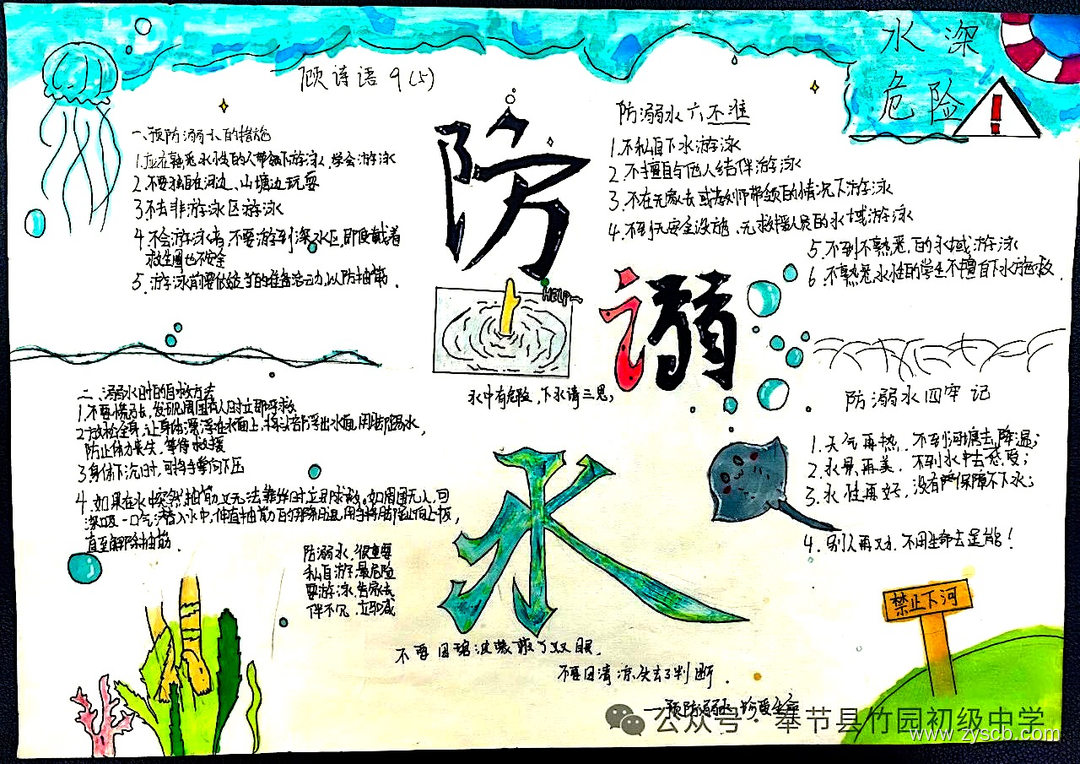 水深
危险
顾诗语 9(5)
一、预防溺水的措施
1.应在熟悉水性的人带领下游泳,学会游泳
2.不要独自在河边、山塘边玩耍
3.不去非游泳区游泳
4.不会游泳者,不要游到深水区,即使戴着
救生圈也不安全
5.游泳前要做适当的准备活动,以防抽筋.
防溺水六不准
1.不私自下水游泳
2.不擅自与他人结伴游泳
3.不在无家长或教师带领的情况下游泳
4.不到无安全设施、无救援人员的水域游泳
5.不到不熟悉的水域游泳
6.不熟悉水性的学生不擅自下水施救.
防
溺
水
HELP~
水中有危险,下水请三思,
二、溺水时的自救方法
1.不要慌张,发现周围有人时立即呼救
2.放松全身,让身体漂浮在水面上,将头部浮出水面,用脚踢水,
防止体力丧失,等待救援
3.身体下沉时,可将手掌向下压
4.如果在水中突然抽筋,又无法靠岸时,立即求救.如周围无人,可
深吸一口气潜入水中,伸直抽筋的那条腿,用手将脚趾向上扳,
直至解除抽筋.
防溺水四牢记
1.天气再热,不到河塘去降温;
2.水景再美,不到水中去感受;
3.水性再好,没有保障不下水;
4.别人再,不用生命去逞能!
防溺水,很重要
私自游,最危险
要游泳,告家长
伴不见,立即喊
禁止下河
不要因碧波蒙蔽了双眼.
不要因清凉失去了判断.
——预防溺水,珍爱生命
公众号·奉节县竹园初级中学
www.zyscb.com